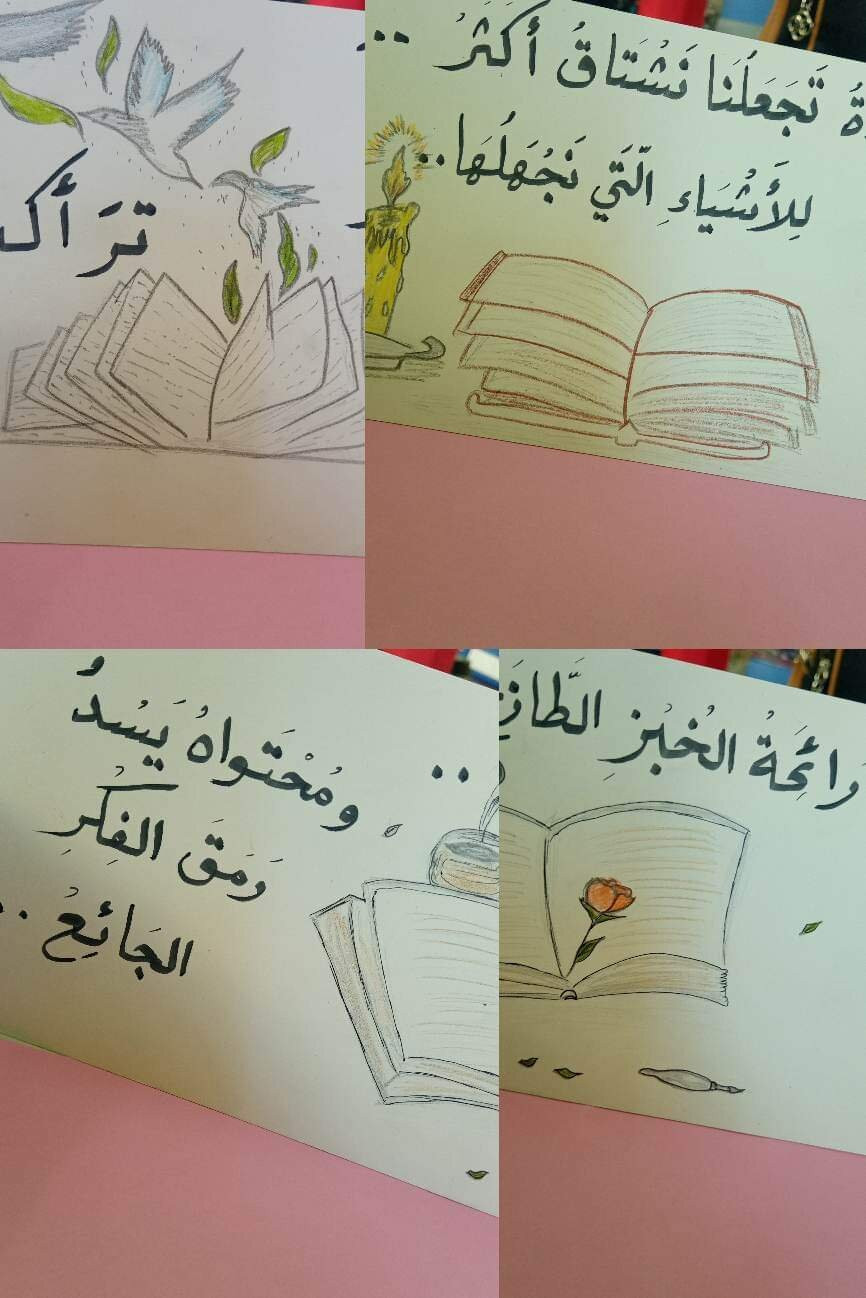 تَجَعَلُنَا نَشْتَاقُ أَكَثَرُ ..
لِلأَشْيَاءِ الّتَي نَجْهَلُهَا..
ومُحْتَواهُ يَسْدُّ ..
رَمَقَ الفِكْرِ
الجَائِعُ ..
رَائحَةُ الخُبْزِ